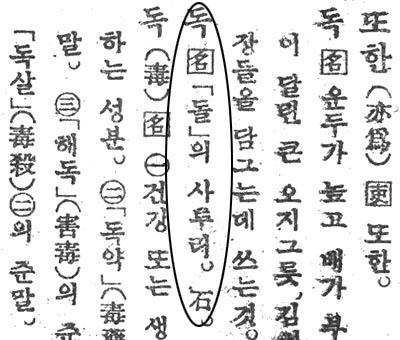 또한(亦爲) 吏 또한。
독 名 운두가 높고 배가 부
이 달린 큰 오지그릇, 김
장들을 담그는데 쓰는것。
독 名 「돌」의 사투리。石
독(毒) 名 ㊀건강 또는 생
하는 성분。㊁「독약」(毒藥
말。㊂「해독」(害毒)의 준
「독살」(毒殺)㊁의 준말。